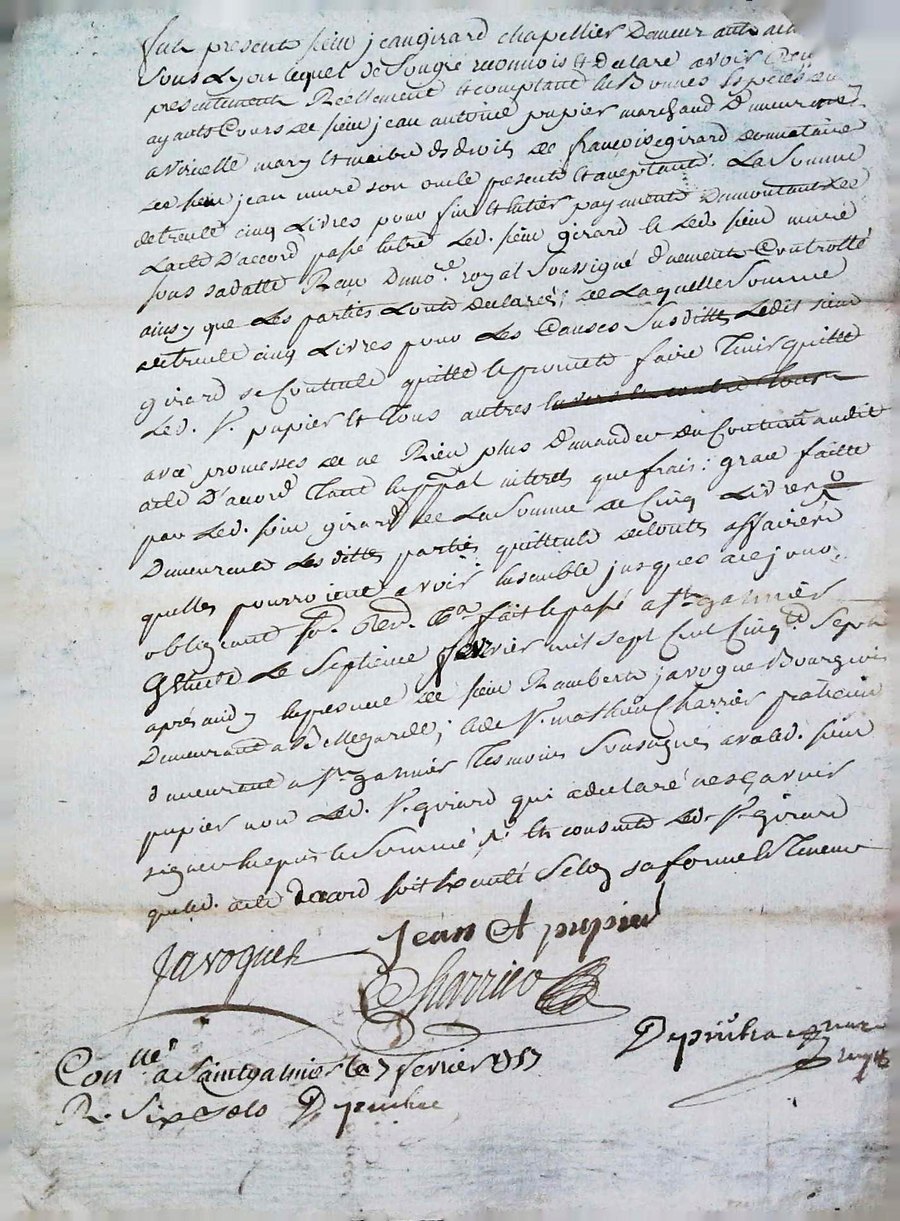 fut present sieur jean girard chapellier demeurant a
sous Lyon lequel de son gré reconnois et declare avoir reçu
presentement Reellement et comptant en Bonnes Especes
ayants Cours de sieur jean antoine pupier marchand demeurant
a Viricelle mary et maitre des droits de françoise girard donnataire
de sieur jean muré son oncle present et acceptant. La Somme
de trente cinq Livres pour fin et entier payement du montant de
Lacte D'accord passé entre Led. sieur girard et Led. sieur muré
sous sa datte Reçu du no.re royal Soussigné duement Controllé
ainsy que Les parties L'ont declaré; de Laquelle Somme
de trente cinq Livres pour Les Causes Susdittes Ledit sieur
girard se Contente quitte et promet faire tenir quitte
Led. Sr. pupier et tous autres
avec promesses de ne Rien plus demander du Contenu audit
acte D'accord tant en p.pal interets que frais: grace faitte
par Led. sieur girard de La Somme de Cinq Livres
Demeurant Les dittes parties quittes de touts affaires
quelles pourroient avoir Ensemble jusques a ce jour
obligeant fait et passé a St. galmier
Estude Le Septieme fevrier mil sept Cent Cinq.te Sept
aprés midy En presence de sieur Rambert javogue Bourgeois
Demeurant a Bellegarde, et de Sr. mathieu Charrier praticien
demeurant a St. galmier tesmoins Soussignés avec led. sieur
pupier non Led. Sr. girard qui a declaré ne sçavoir
signer Enquis et Sommé, et consent Led. Sr. girard
que led. acte daccord soit Executé Selon sa forme et Teneur
Javogues Jean At pupier
Charrier
Con.llé a Saint galmier le 7 fevrier 1757
R. Six Sols